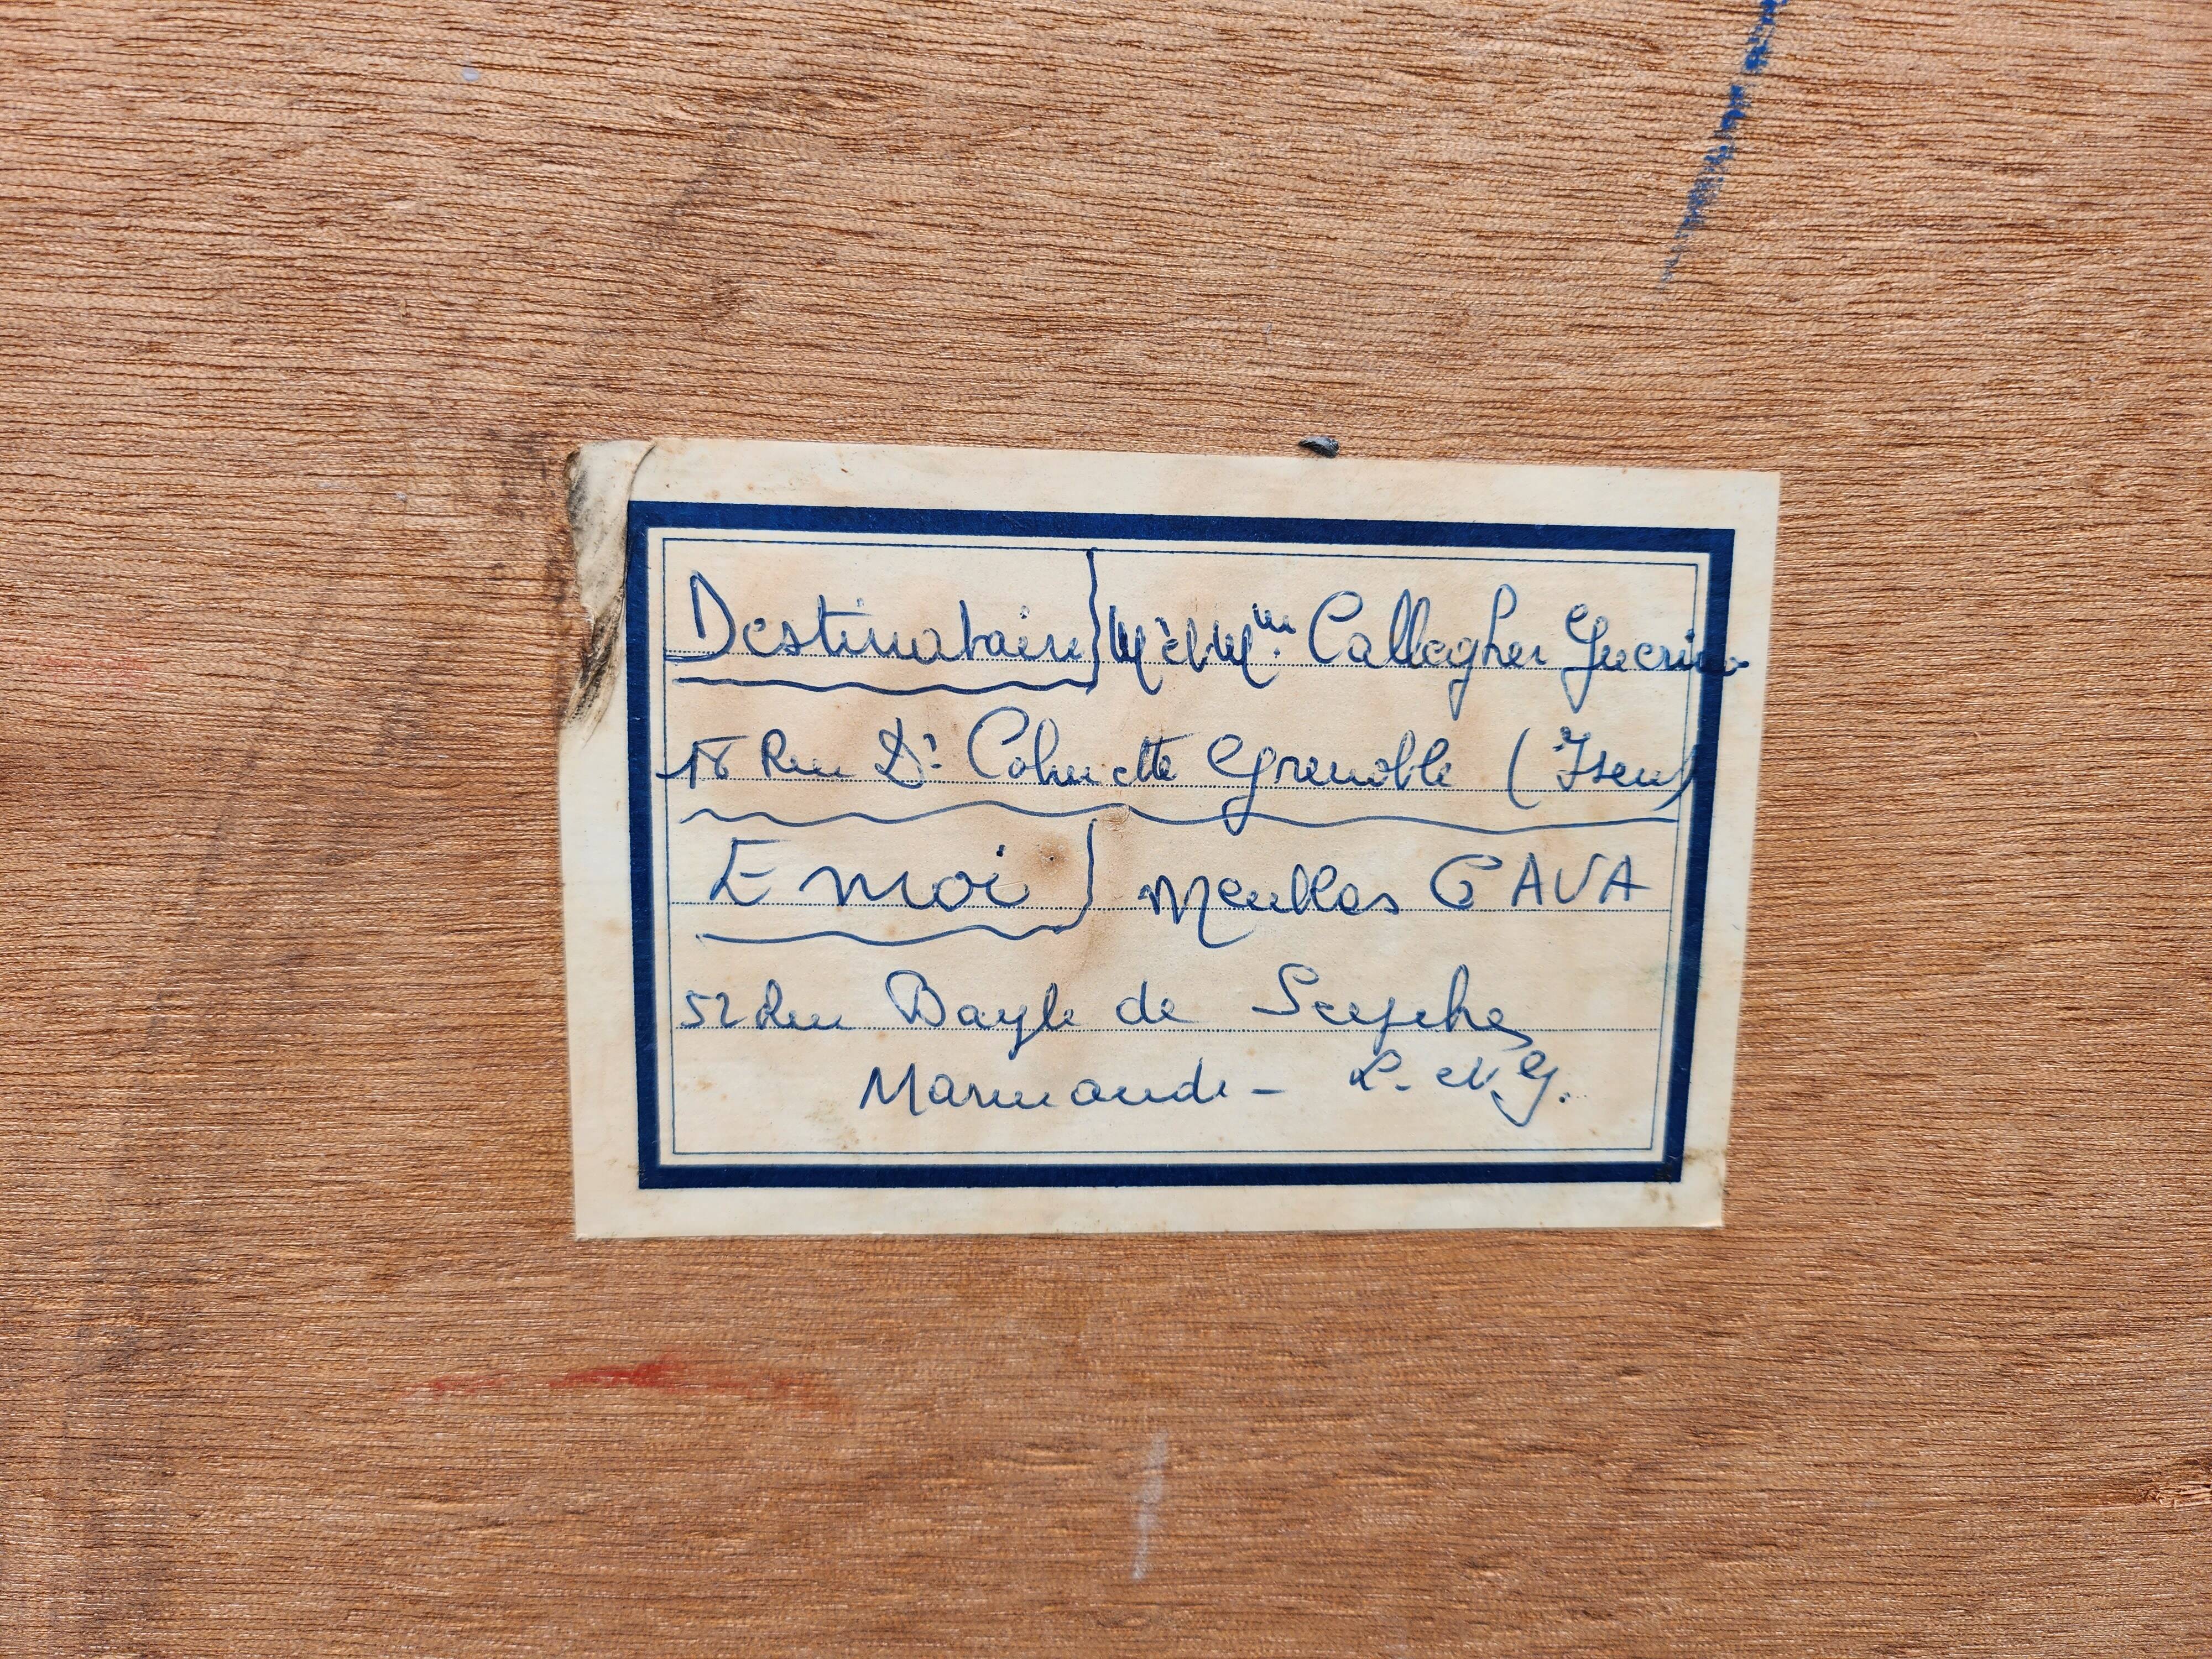 Destinataire } Mr et Mme. Callegher Guerino
18 Rue Dr Calmette Grenoble (Isère)
Envoi } Meubles GAVA
52 Rue Bayle de Seyches
Marmande - L. et G.